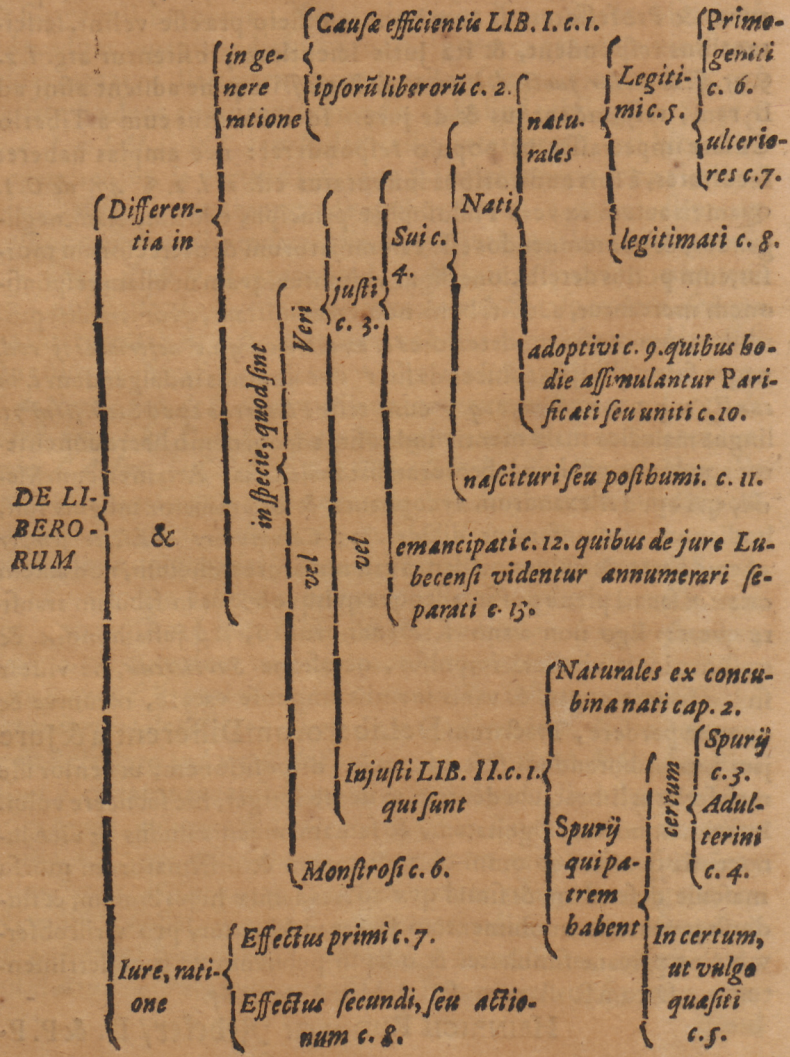 DE LI-
BERO-
RUM
Differen-
tia in
&
in ge-
nere
ratione
Causæ efficientis LIB. I. c. 1.
ipsorũ liberorũ c. 2.
in specie, quod sint
Veri
vel
justi
c. 3.
vel
Sui c.
4.
Nati
natu-
rales
Legiti-
mi c. 5.
Primo-
geniti
c. 6.
ulterio-
res c. 7.
legitimati c. 8.
adoptivi c. 9. quibus ho-
die assimulantur Pari-
ficati seu uniti c. 10.
nascituri seu posthumi. c. 11.
emancipati c. 12. quibus de jure Lu-
becensi videntur annumerari se-
parati c. 13.
Injusti LIB. II. c. 1.
qui sunt
Naturales ex concu-
bina nati cap. 2.
Spurij
qui pa-
trem
habent
certum
Spurij
c. 3.
Adul-
terini
c. 4.
In certum,
ut vulgo
quæsiti
c. 5.
Monstrosi c. 6.
Iure, rati-
one
Effectus primi c. 7.
Effectus secundi, seu actio-
num c. 8.